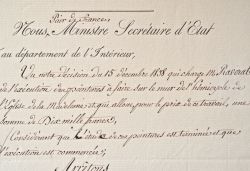 Pair de France,
Nous, Ministre Secrétaire d'Etat
au département de l'Intérieur,
Vu notre décision du 15 décembre 1838 qui charge M.
de l'exécution des peintures à faire sur le mur de l'hémicycle de
l'Eglise de la Madeleine, et qui alloue, pour le prix de ce travail, une
somme de Dix mille francs;
Considérant que l'étude de ces peintures est terminée et que
l'exécution est commencée;
Arrêtons